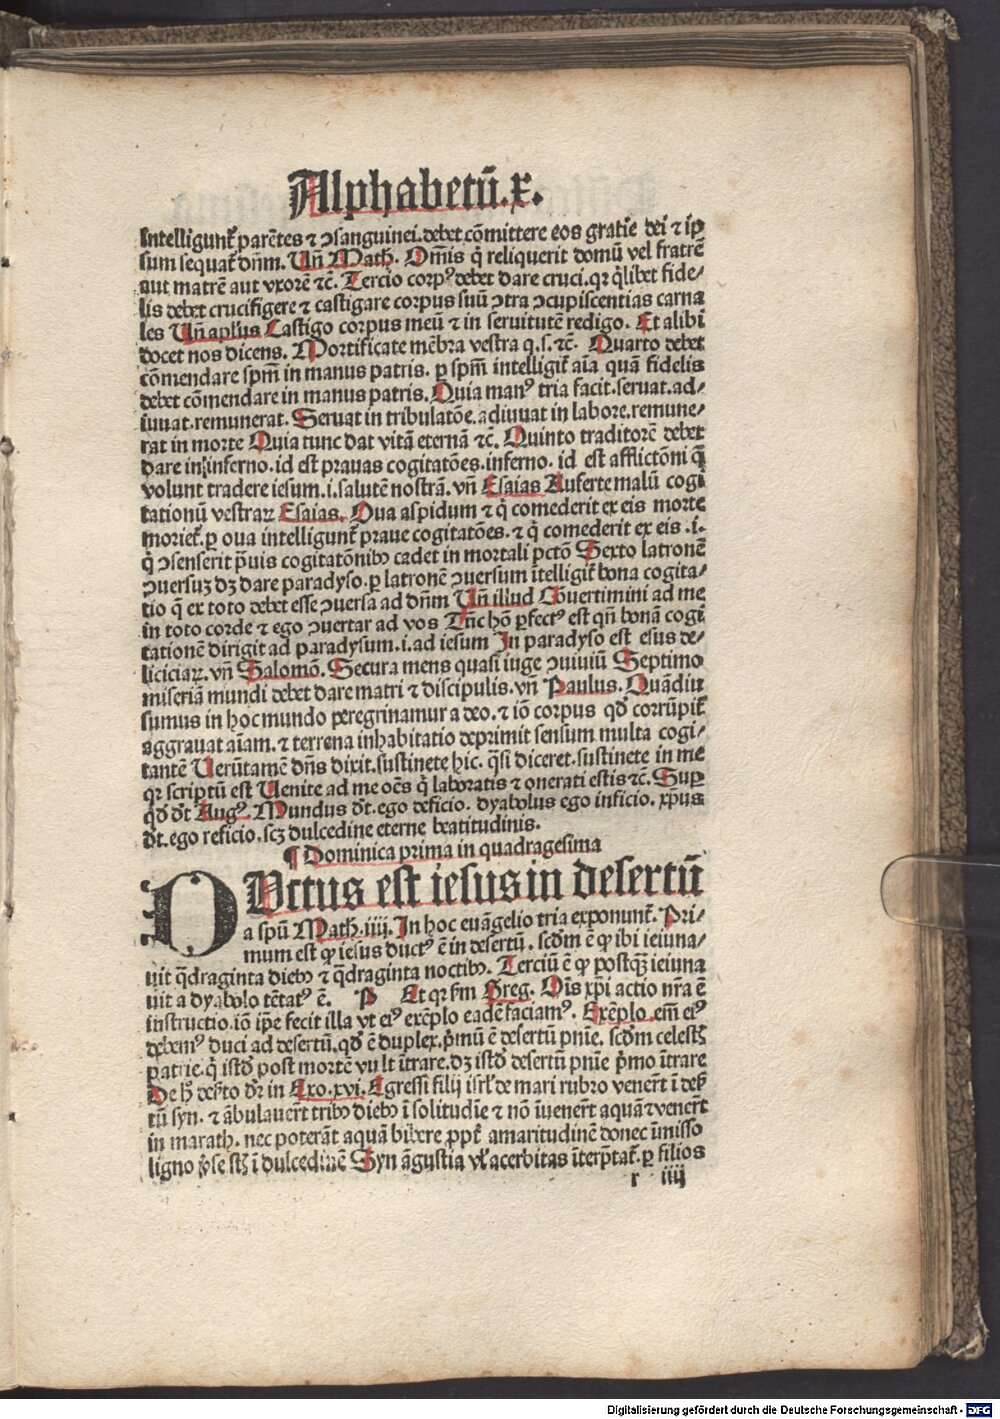 Alphabetū.x.
intelligunt᷑ parētes ⁊ ɔsanguinei.debet cōmittere eos gratie dei ⁊ ip̄
sum sequat᷑ dn̄m. Un̄ Math. Om̄is q̇ reliquerit domū vel fratrē
aut matrē aut vxorē ⁊c̄. Tercio corpꝰ debet dare cruci.qꝛ q̇libet fide⸗
lis debet crucifigere ⁊ castigare corpus suū ɔtra ɔcupiscentias carna
les Un̄ apl̓us Castigo corpus meū ⁊ in seruitutē redigo. Et alibi
docet nos dicens. Mortificate mēbra vestra q.s.⁊c̄. Quarto debet
cōmendare spm̄ in manus patris. ꝑ spm̄ intelligit᷑ aīa quā fidelis
debet cōmendare in manus patris. Quia manꝰ tria facit.seruat.ad⸗
iuuat.remunerat. Seruat in tribulatōe.adiuuat in labore.remune⸗
rat in morte Quia tunc dat vitā eternā ⁊c̄. Quinto traditorē debet
dare in inferno.id est prauas cogitatōes.inferno.id est afflictōni q̄
volunt tradere iesum.i.salutē nostrā. vn̄ Esaias Auferte malū cogi
tationū vestraꝝ Esaias. Oua aspidum ⁊ q̇ comederit ex eis morte
moriet᷑.ꝑ oua intelligunt᷑ praue cogitatōes.⁊ q̇ comederit ex eis .i.
q̇ ɔsenserit p̄uis cogitatōnibꝰ cadet in mortali pctō Sexto latronē
ɔuersuꝫ dꝫ dare paradyso.ꝑ latronē ɔuersum ītelligit᷑ bona cogita⸗
tio q̄ ex toto debet esse ɔuersa ad dn̄m Un̄ illud Cōuertimini ad me
in toto corde ⁊ ego ɔuertar ad vos Tūc hō ꝑfectꝰ est qn̄ bonā cogi
tationē dirigit ad paradysum.i.ad iesum In paradyso est esus de⸗
liciciaꝝ. vn̄ Salomō. Secura mens quasi iuge ɔuiuiū Septimo
miseriā mundi debet dare matri ⁊ discipulis. vn̄ Paulus. Quādiu
sumus in hoc mundo peregrinamur a deo. ⁊ iō corpus qd̓ corrūpit᷑
aggrauat aīam. ⁊ terrena inhabitatio deprimit sensum multa cogi⸗
tantē Uerūtamē dn̄s dixit.sustinete hic. q̄si diceret.sustinete in me
qꝛ scriptū est Uenite ad me oēs q̇ laboratis ⁊ onerati estis ⁊c̄. Suꝑ
qd̓ dt̓ Augꝰ. Mundus dt̓.ego deficio. dyabolus ego inficio. xp̄us
dt̓.ego reficio.scꝫ dulcedine eterne beatitudinis.
¶ Dominica prima in quadragesima
DUctus est iesus in desertū
a spū Math.iiij. In hoc euāgelio tria exponunt᷑. Pri⸗
mum est ꝙ iesus ductꝰ ē in desertū. scd̓m ē ꝙ ibi ieiuna⸗
uit q̄draginta diebꝰ ⁊ q̄draginta noctibꝰ. Terciū ē ꝙ postqꝫ ieiuna
uit a dyabolo tētatꝰ ē. P Et qꝛ fm̄ Greg. Ois xp̄i actio nr̄a ē
instructio.iō ip̄e fecit illa vt eiꝰ exēplo eadē faciamꝰ. Exēplo.em̄ eiꝰ
debemꝰ duci ad desertū.qd̓ ē duplex.p̄mū ē desertū pnīe. scd̓m celestꝭ
patrie.q̇ istd̓ post mortē vult ītrare.dꝫ istd̓ desertū pnīe p̄mo ītrare
De hꝰ deẜto dr̓ in Exo.xvi. Egressi filij isrl̓ de mari rubro venert̓ ī deẜ
tū syn. ⁊ ābulauert̓ tribꝰ diebꝰ ī solitudīe ⁊ nō īuenert̓ aquā ⁊ venert̓
in marath. nec poterāt aquā bibere ꝓpt̓ amaritudinē donec īmisso
ligno v̓se st̓ ī dulcedinē Syn āgustia vl̓ acerbitas īterp̄tat᷑. ꝑ filios
r iiij
Digitalisierung gefördert durch die Deutsche Forschungsgemeinschaft - DFG